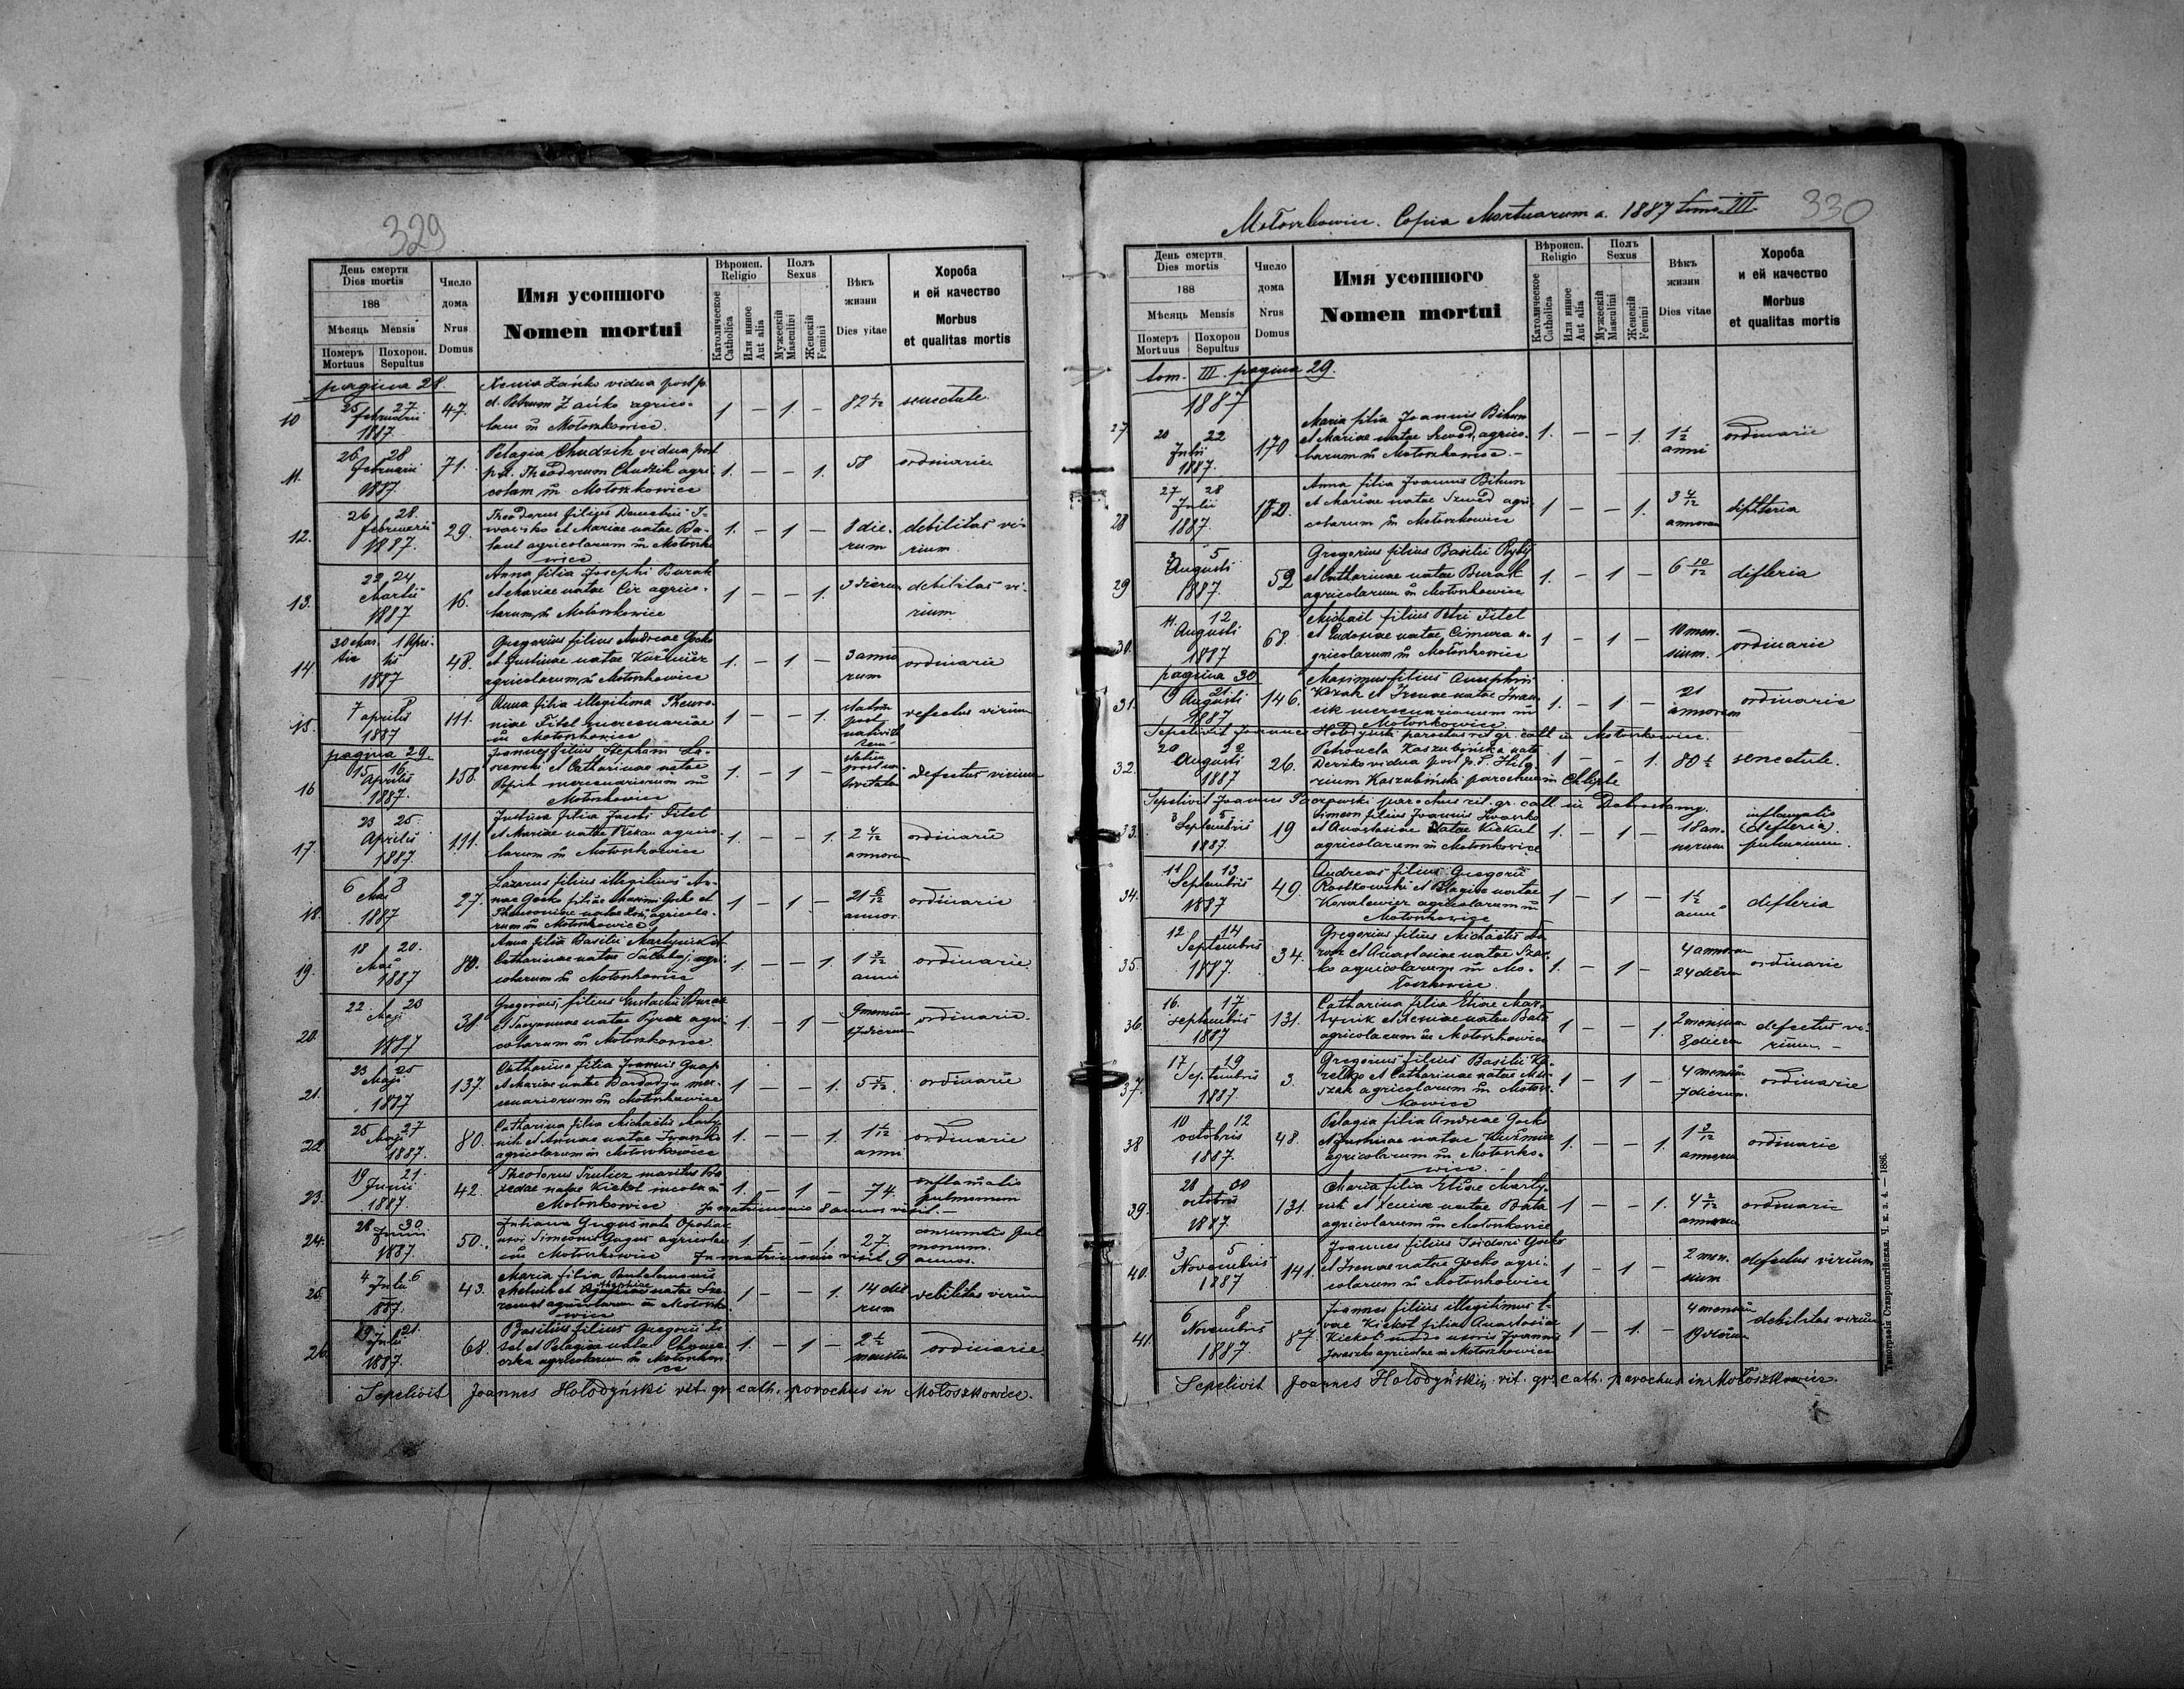 329
День смерти
Dies mortis
188
Мѣсяць Mensis
Померъ Mortuus
Похорон. Sepultus
Число дома
Nrus Domus
Имя усопшого
Nomen mortui
Вѣроисп. Religio
Католическое Catholica
Или инное Aut alia
Полъ Sexus
Мужескій Masculini
Женскій Femini
Вѣкъ жизни
Dies vitae
Хороба и ей качество
Morbus et qualitas mortis
pagina 28.
10 25 27 februarii 1887. 47. Xenia Zańko vidua post p.
d. Petrum Zańko agrico-
lam in Mołoszkowice. 1 – 1 – 82 senectute
11. 26 28 februarii 1887. 71. Pelagia Chudzik vidua post
p.d. Theodorum Chudzik agri-
colam in Mołoszkowice 1. – – 1. 58 ordinarie
12. 26 28. februarii 1887. 29. Theodorus filius Demetrii I-
waśko et Mariae natae Ba-
agricolarum in Mołoszko
wice 1. – 1 – 8 die-
rum debilitas vi-
rium
13. 22 24 Martii 1887 16. Anna filia Josephi Burak
et Mariae natae Cir agrico-
larum in Mołoszkowice 1 – – 1. 3 dierum debilitas vi-
rium
14. 30 Mar-
tii 1 Apri-
lis 1887 48. Gregorius filius Andreae Gocko
et Justinae natae Kuźmicz
agricolarum in Mołoszkowice 1. – 1 – 3 anno
rum ordinarie
15. 7 8 aprilis 1887 111. Anna filia illegitima Thewro-
niae Fitel mercenariae
in Mołoszkowice 1 – – 1. statim
post
nativita
tem defectus virium
pagina 29.
16 15 16 Aprilis 1887. 158. Joannes filius Stephani
et Catharinae natae
mercenariorum in
Mołoszkowice 1. – 1 – statim
post na-
tivitatem defectus virium
17. 23 25. Aprilis 1887. 191. Justina filia Jacobi Fitel
et Mariae natae agrico-
larum in Mołoszkowice 1. – – 1. 2 4/12
annorum ordinarie
18. 6 8 Mai 1887 27. Lazarus filius illegitimus An-
nae Gocko filiae Maximi Gocko et
Thewroniae natae agricola-
rum in Mołoszkowice 1 – 1 – 21 6/12
annor. ordinarie
19. 18 20. Mai 1887 80. Anna filia Basilii Martyniuk et
Catharinae natae agri-
colarum in Mołoszkowice 1. – – 1. 1 3/12
anni ordinarie.
20. 22. 23 Maji 1887 38 filius Eustachii Burak
et natae agri-
colarum in Mołoszkowice 1. – 1 – 9 mensium
17 dierum ordinarie.
21. 23 25 Maji 1887 137. Catharina filia Joannis Gnap
et Mariae natae mer-
cenariorum in Mołoszkowice 1 – – 1. 5 5/12. ordinarie
22. 25 27 Maji 1887. 80. Catharina filia Michaelis Marty-
niuk et Annae natae Iwaszko
agricolarum in Mołoszkowice 1. – – 1. 1 1/12
anni ordinarie
23. 19 21. Junii 1887. 42. Theodorus maritus
natae Kiekot incola in
Mołoszkowice 1. – 1 – 74. inflamatio
pulmonum
In matrimonio 8 annos vixit.
24. 28 30 Junii 1887. 50. Juliana Gugus nata
uxor Simeonis Gugus agricolae
in Mołoszkowice 1 – – 1. 27. consumtio pul
monum.
In matrimonio vixit 9 annos.
25. 4 6 Julii 1887. 43. Maria filia Panteleimonis
Melnik et natae
agricolarum in Mołoszko
wice 1 – – 1. 14 die
rum debilitas virium
26. 19 21. Julii 1887. 68. Basilius filius Gregorii
et Pelagiae natae
agricolarum in Mołoszkowi
ce 1. – 1 – 2 ordinarie
Sepelivit Joannes Hołodyński rit. gr. cath. parochus in Mołoszkowice.
Mołoszkowice. Copia Mortuorum a. 1887 tom. III. 330
День смерти
Dies mortis
188
Мѣсяць Mensis
Померъ Mortuus
Похорон Sepultus
Число дома
Nrus Domus
Имя усопшого
Nomen mortui
Вѣроисп. Religio
Католическое Catholica
Или инное Aut alia
Полъ Sexus
Мужескій Masculini
Женскій Femini
Вѣкъ жизни
Dies vitae
Хороба и ей качество
Morbus et qualitas mortis
tom. III. pagina 29.
1887
27. 20 22 Julii 1887. 170 Maria filia Joannis Bihun
et Mariae natae Szwed, agrico-
larum in Mołoszkowice. – 1. – – 1. 1 1/2
anni ordinarie
28 27 28 Julii 1887. 170. Anna filia Joannis Bihun
et Mariae natae Szwed agri-
colarum in Mołoszkowice 1 – – 1. 3 4/12
annorum difteria
29 3 5 Augusti 1887. 52 Gregorius filius Basilii
et Catharinae natae Burak
agricolarum in Mołoszkowice 1. – 1 – 6 10/12 difteria
30. 11. 12 Augusti 1887 68. Michael filius Petri Fitel
et Eudoxiae natae Cimura a-
gricolarum in Mołoszkowice 1 – 1 – 10 men-
sium. ordinarie
pagina 30
31. 21. Augusti 1887 146. Maximus filius Onuphrii
Kozak et Irenae natae
mercenariorum in
Mołoszkowice 1. – 1 – 21
annorum ordinarie
Sepelivit Joannes Hołodyński parochus rit. gr. cath. in Mołoszkowice.
32. 20 22 Augusti 1887 26. Petronela Kaszubińska nata
vidua post p. d.
Kaszubiński parochum in 1 – – 1. 80 senectute.
Sepelivit Joannes Paczowski parochus rit. gr. cath. in Dobrostany.
33. 3 5 Septembris 1887. 19 Simeon filius Joannis Iwaszko
et Anastasiae natae Kiekot
agricolarum in Mołoszkowice 1. – 1 – 18 an-
norum inflamatio
(difteria)
pulmonum.
34. 11 13 Septembris 1887 49. Andreas filius Gregorii
Rostkowski et Pelagiae natae
Kowalewicz agricolarum in
Mołoszkowice 1 – 1 – 1
anni difteria
35. 12 14 Septembris 1887. 34. Gregorius filius Michaelis
et Anastasiae natae
agricolarum in Mo-
łoszkowice 1. – 1 – 4 annorum
24 dierum ordinarie
36. 16. 17 septembris 1887 131. Catharina filia Eliae Mar-
tyniuk et Xeniae natae Bata
agricolarum in Mołoszkowice 1 – – 1. 2 mensium
8 dierum defectus vi-
rium –
37. 17 19 Septembris 1887. 3. Gregorius filius Basilii
et Catharinae natae
agricolarum in Mołosz-
kowice 1 – 1 – 4 mensium
7 dierum. ordinarie
38 10 12 octobris 1887. 48. Pelagia filia Andreae Gocko
et Justinae natae Kuźmicz
agricolarum in Mołoszko-
wice. 1. – – 1. 1
annorum ordinarie
39. 28 30 octobris 1887. 131. Maria filia Eliae Marty-
niuk et Xeniae natae Bata
agricolarum in Mołoszkowice 1 – – 1. 4
annorum ordinarie
40. 3 5 Novembris 1887 141. Joannes filius Isidori Gocko
et Irenae natae Gocko agri-
colarum in Mołoszkowice 1 – 1 – 2 men-
sium defectus virium
41. 6 8 Novembris 1887. 87. Joannes filius illegitimus E-
vae Kiekot filiae Anastasiae
Kiekot modo uxoris Joannis
Iwaszko agricolae in Mołoszkowice 1 – 1. – 4 mensium
19 dierum debilitas virium
Sepelivit Joannes Hołodyński, rit. gr. cath. parochus in Mołoszkowice.
Типографія Ставропигійская. Ч. к. з. 4. — 1886.